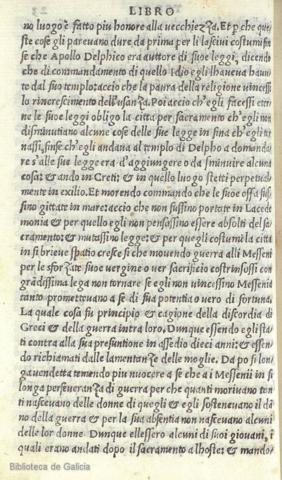 LIBRO
no luogo è fatto piu honore alla uecchiezza. Et perche que
ste cose gli pareuano dure da prima per li lascini costumi fin
se che Apollo Delphico era auttore di suoe leggi, dicendo
che di commandamento di quello idio egli l'haueua haun
to dal suo tempio: accio che la paura della religione uincesse
lo rincrescimento dell'usanza. Poi accio ch'egli facessi etter
ne le suoe leggi obligo la citta per sacramento ch'egli non
disminutiano alcune cose delle sue legge in fina eb'egli tor
nassi, finse ch'egli andaua al tempio di Delpho a domanda
re s'alle sue legge era d'aggiungere o da sminuire alcuna
cosa: & ando in Creti; & in quello luogo stetti perpetual
mente in exilio. Et morendo commando che le suoe ossa fus
sino gittate in mare: accio che non fussino portate in Laced
monia & per quello egli non pensassino essere absolti del sa
cramento: & mutassino legge: & per quegli costumi la citta
in si brieue spatio cresce si che mouendo guerra alli Messeni
per le sforzate suoe uergine o uer sacrificio costrinsossi con
grãdissima lega non tornare se egli non uincessino Messenia
tanto promettauano a se di sua potentia o uero di fortuna.
La quale cosa fu principio & cagione della discordia di
Greci & della guerra intra loro. Dunque essendo egli sta
ti contra alla sua presuntione in assedio dieci anni: & essen
do richiamati dalle lamentanze delle moglie. Da po si lon
ga uendetta temendo piu nuocere a se che a i Messenii in si
longa perseueranza di guerra per che quanti moriuano ton
ti nasceuano delle donne di quegli & egli sosteneuano il dã
no della guerra & per la sua absentia non nasceuano alcuni
delle lor donne. Dunque ellessero alcuni di suoi giouani, i
quali erano andati dopo il sacramento a l'hoste: & mandor
Biblioteca de Galicia